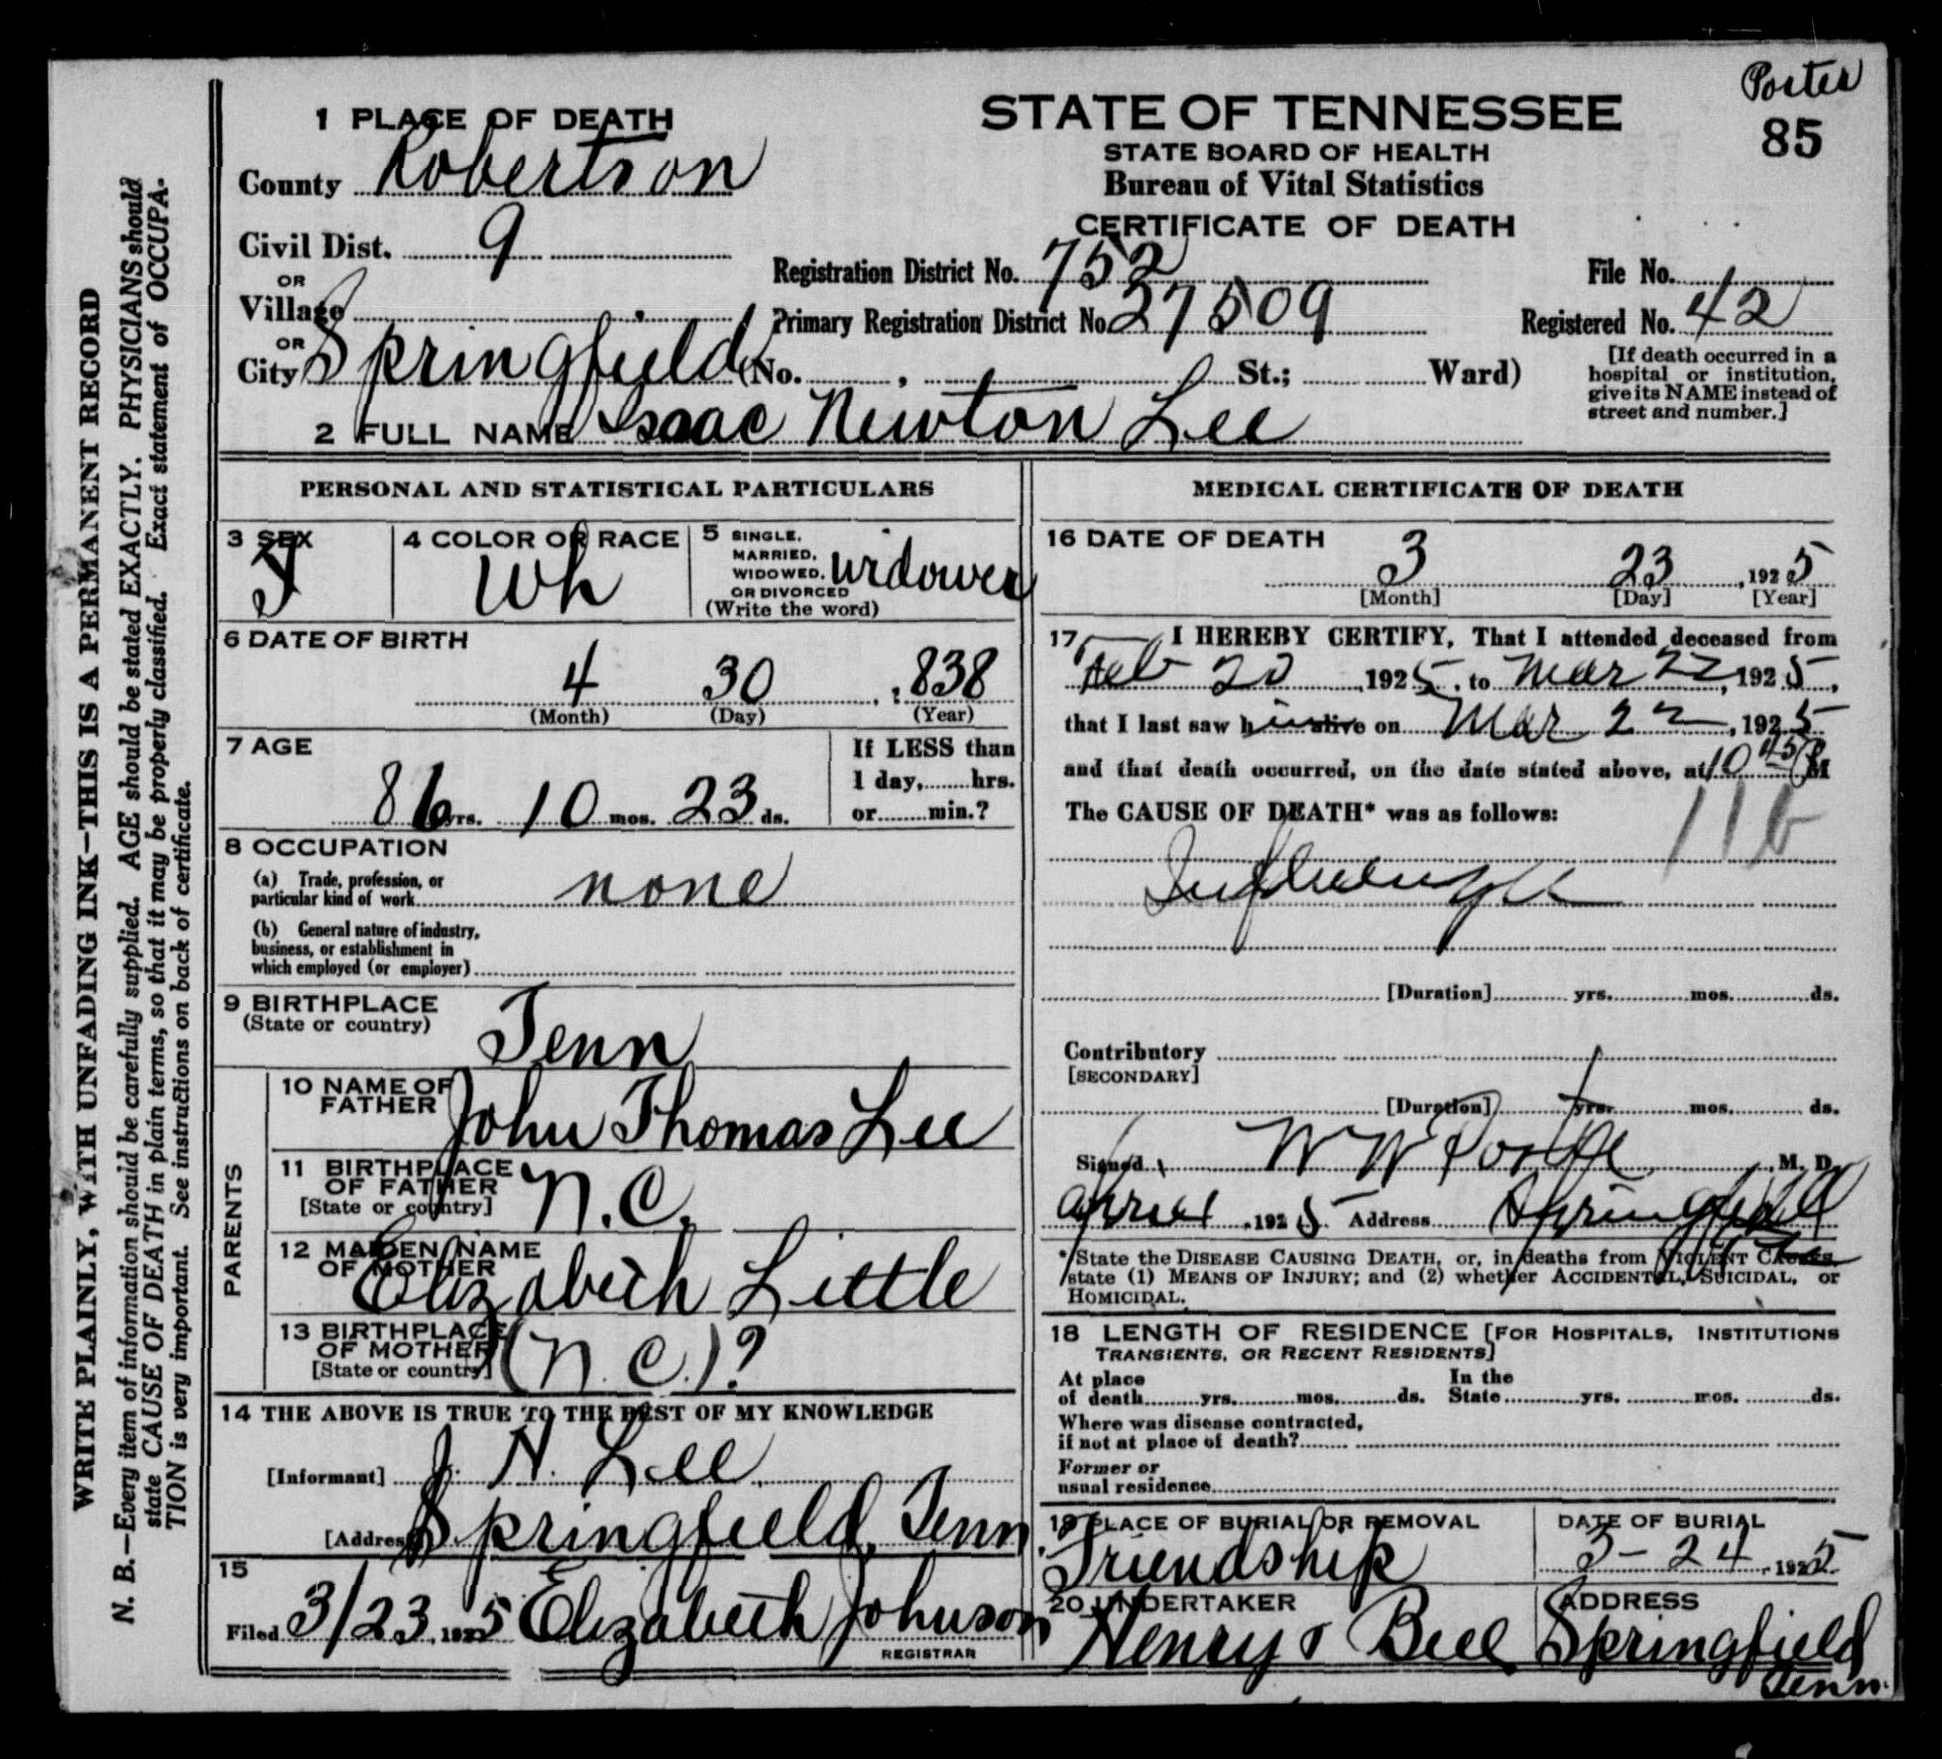 Porter
85
1 PLACE OF DEATH
County Robertson
Civil Dist. 9
OR
Village
OR
City Springfield (No. , St.; Ward)
STATE OF TENNESSEE
STATE BOARD OF HEALTH
Bureau of Vital Statistics
CERTIFICATE OF DEATH
Registration District No. 752
Primary Registration District No. 27509
File No.
Registered No. 42
[If death occurred in a
hospital or institution,
give its NAME instead of
street and number.]
2 FULL NAME Isaac Newton Lee
WRITE PLAINLY, WITH UNFADING INK—THIS IS A PERMANENT RECORD
N. B.—Every item of information should be carefully supplied. AGE should be stated EXACTLY. PHYSICIANS should
state CAUSE OF DEATH in plain terms, so that it may be properly classified. Exact statement of OCCUPA-
TION is very important. See instructions on back of certificate.
PERSONAL AND STATISTICAL PARTICULARS
3 SEX
4 COLOR OR RACE
Wh
5 SINGLE,
MARRIED,
WIDOWED,
OR DIVORCED
(Write the word)
widower
6 DATE OF BIRTH
4 30 , 838
(Month) (Day) (Year)
7 AGE
86 yrs. 10 mos. 23 ds.
If LESS than
1 day,........hrs.
or........min.?
8 OCCUPATION
(a) Trade, profession, or
particular kind of work none
(b) General nature of industry,
business, or establishment in
which employed (or employer)
9 BIRTHPLACE
(State or country)
Tenn
PARENTS
10 NAME OF
FATHER
John Thomas Lee
11 BIRTHPLACE
OF FATHER
[State or country]
N.C.
12 MAIDEN NAME
OF MOTHER
Elizabeth Little
13 BIRTHPLACE
OF MOTHER
[State or country]
(N.C.)?
14 THE ABOVE IS TRUE TO THE BEST OF MY KNOWLEDGE
[Informant] J. N. Lee
[Address] Springfield, Tenn
15
Filed 3/23, 1925 Elizabeth Johnson
REGISTRAR
MEDICAL CERTIFICATE OF DEATH
16 DATE OF DEATH
3 23 , 1925
[Month] [Day] [Year]
17 I HEREBY CERTIFY, That I attended deceased from
Feb 20 , 1925, to Mar 22, 1925,
that I last saw him alive on Mar 22, 1925
and that death occurred, on the date stated above, at 10 45 P M
The CAUSE OF DEATH* was as follows:
11b
[Duration] yrs. mos. ds.
Contributory
[SECONDARY]
[Duration] yrs. mos. ds.
Signed W W Porter, M. D.
, 1925 Address Springfield
*State the DISEASE CAUSING DEATH, or, in deaths from VIOLENT CAUSES,
state (1) MEANS OF INJURY; and (2) whether ACCIDENTAL, SUICIDAL, or
HOMICIDAL.
18 LENGTH OF RESIDENCE [FOR HOSPITALS, INSTITUTIONS
TRANSIENTS, OR RECENT RESIDENTS]
At place
of death........yrs.........mos.........ds.
In the
State..........yrs. ..........mos. ..........ds.
Where was disease contracted,
if not at place of death?
Former or
usual residence
19 PLACE OF BURIAL OR REMOVAL
Friendship
DATE OF BURIAL
3-24, 1925
20 UNDERTAKER
Henry & Bell
ADDRESS
Springfield
Tenn.